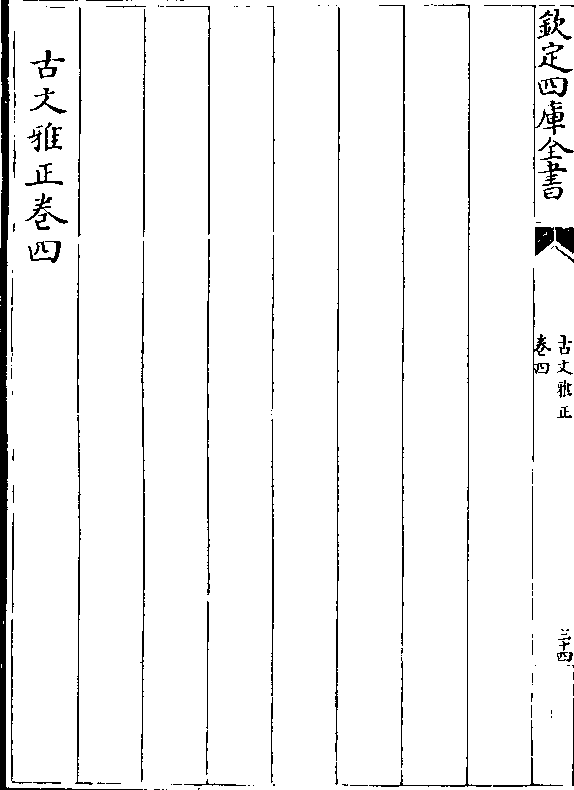 欽定四庫全書
古文雅正
卷四
三十四
古文雅正卷四